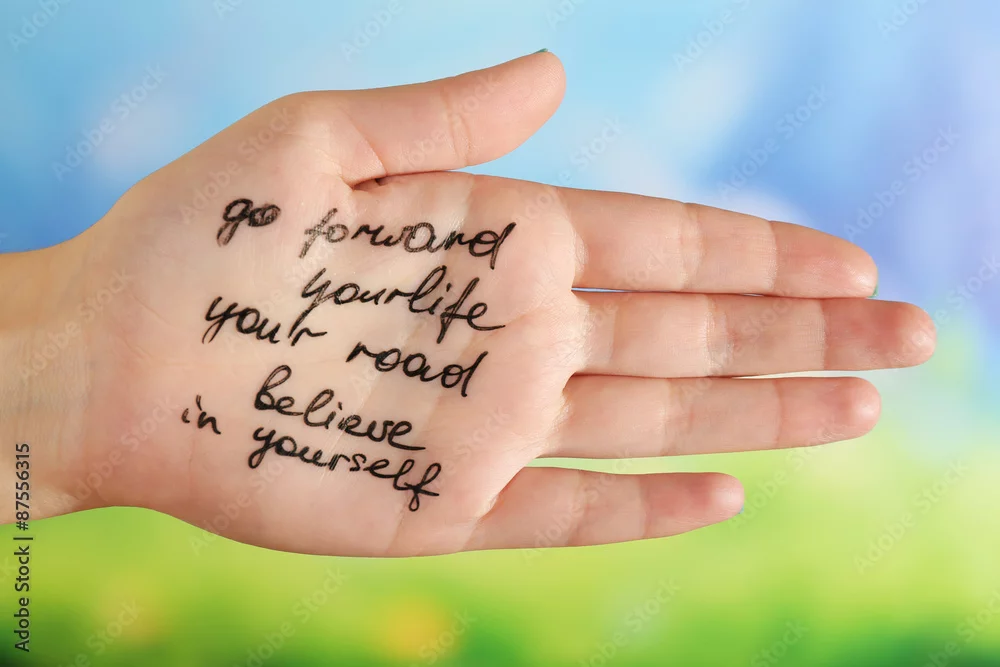 go forward
your life
your road
believe
in yourself
Adobe Stock | #87556315